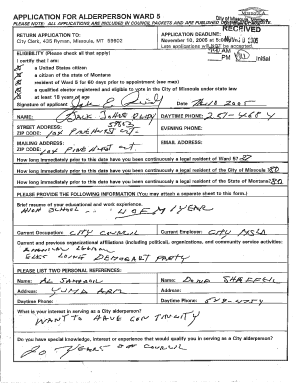 APPLICATION FOR ALDERPERSON WARD 5
PLEASE NOTE: ALL APPLICATIONS ARE INCLUDED IN COUNCIL PACKETS AND ARE PUBLISHED
City of Missoula, Montana
RECEIVED
RETURN APPLICATION TO:
City Clerk, 435 Ryman, Missoula, MT 59802
APPLICATION DEADLINE:
November 10, 2005 at 5:00
Late applications will NOT be accepted.
AM
PM
Initial
ELIGIBILITY (Please check all that apply)
I certify that I am:
a United States citizen
a citizen of the state of Montana
resident of Ward 5 for 60 days prior to appointment (see map)
a qualified elector registered and eligible to vote in the City of Missoula under state law
at least 18 years of age
Signature of applicant
Date Nov 10 2005
NAME: Jack
DAYTIME PHONE: 251-4684
STREET ADDRESS:
ZIP CODE:
EVENING PHONE:
MAILING ADDRESS:
ZIP CODE:
EMAIL ADDRESS:
How long immediately prior to this date have you been continuously a legal resident of Ward 5?
How long immediately prior to this date have you been continuously a legal resident of the City of Missoula?
How long immediately prior to this date have you been continuously a legal resident of the State of Montana?
PLEASE PROVIDE THE FOLLOWING INFORMATION (You may attach a separate sheet to this form).
Brief resume of your educational and work experience.
HIGH SCHOOL U OF M 1 YEAR
Current Occupation: CITY COUNCIL
Current Employer: CITY MSLA
Current and previous organizational affiliations (including political, organizations, and community service activities:
AMERICAN LEGION
ELKS LODGE DEMOCRAT PARTY
PLEASE LIST TWO PERSONAL REFERENCES:
Name: AL SAMPSON
Name: DOUG
Address: YUMA ARIZ
Address:
Daytime Phone:
Daytime Phone:
What is your interest in serving as a City alderperson?
WANT TO HAVE CONTINUITY
Do you have special knowledge, interest or experience that would qualify you in serving as a alderperson?
20 YEARS ON COUNCIL